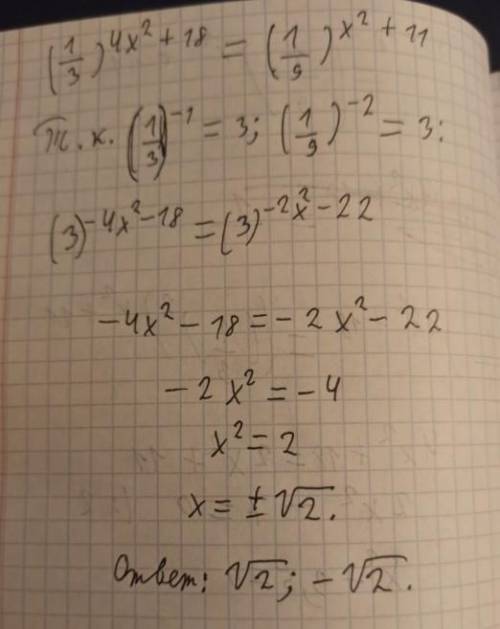 (1/3)^4x²+18 = (1/9)^x²+11
Т.к. (1/3)^-1 = 3; (1/9)^-2 = 3:
(3)^-4x²-18 = (3)^-2x²-22
-4x² - 18 = - 2x² - 22
-2x² = -4
x² = 2
x = ± √2.
Ответ: √2; -√2.